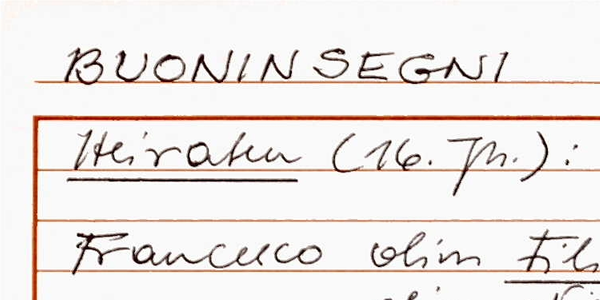 BUONINSEGNI
Heiraten (16. Jh.):
Francesco olim